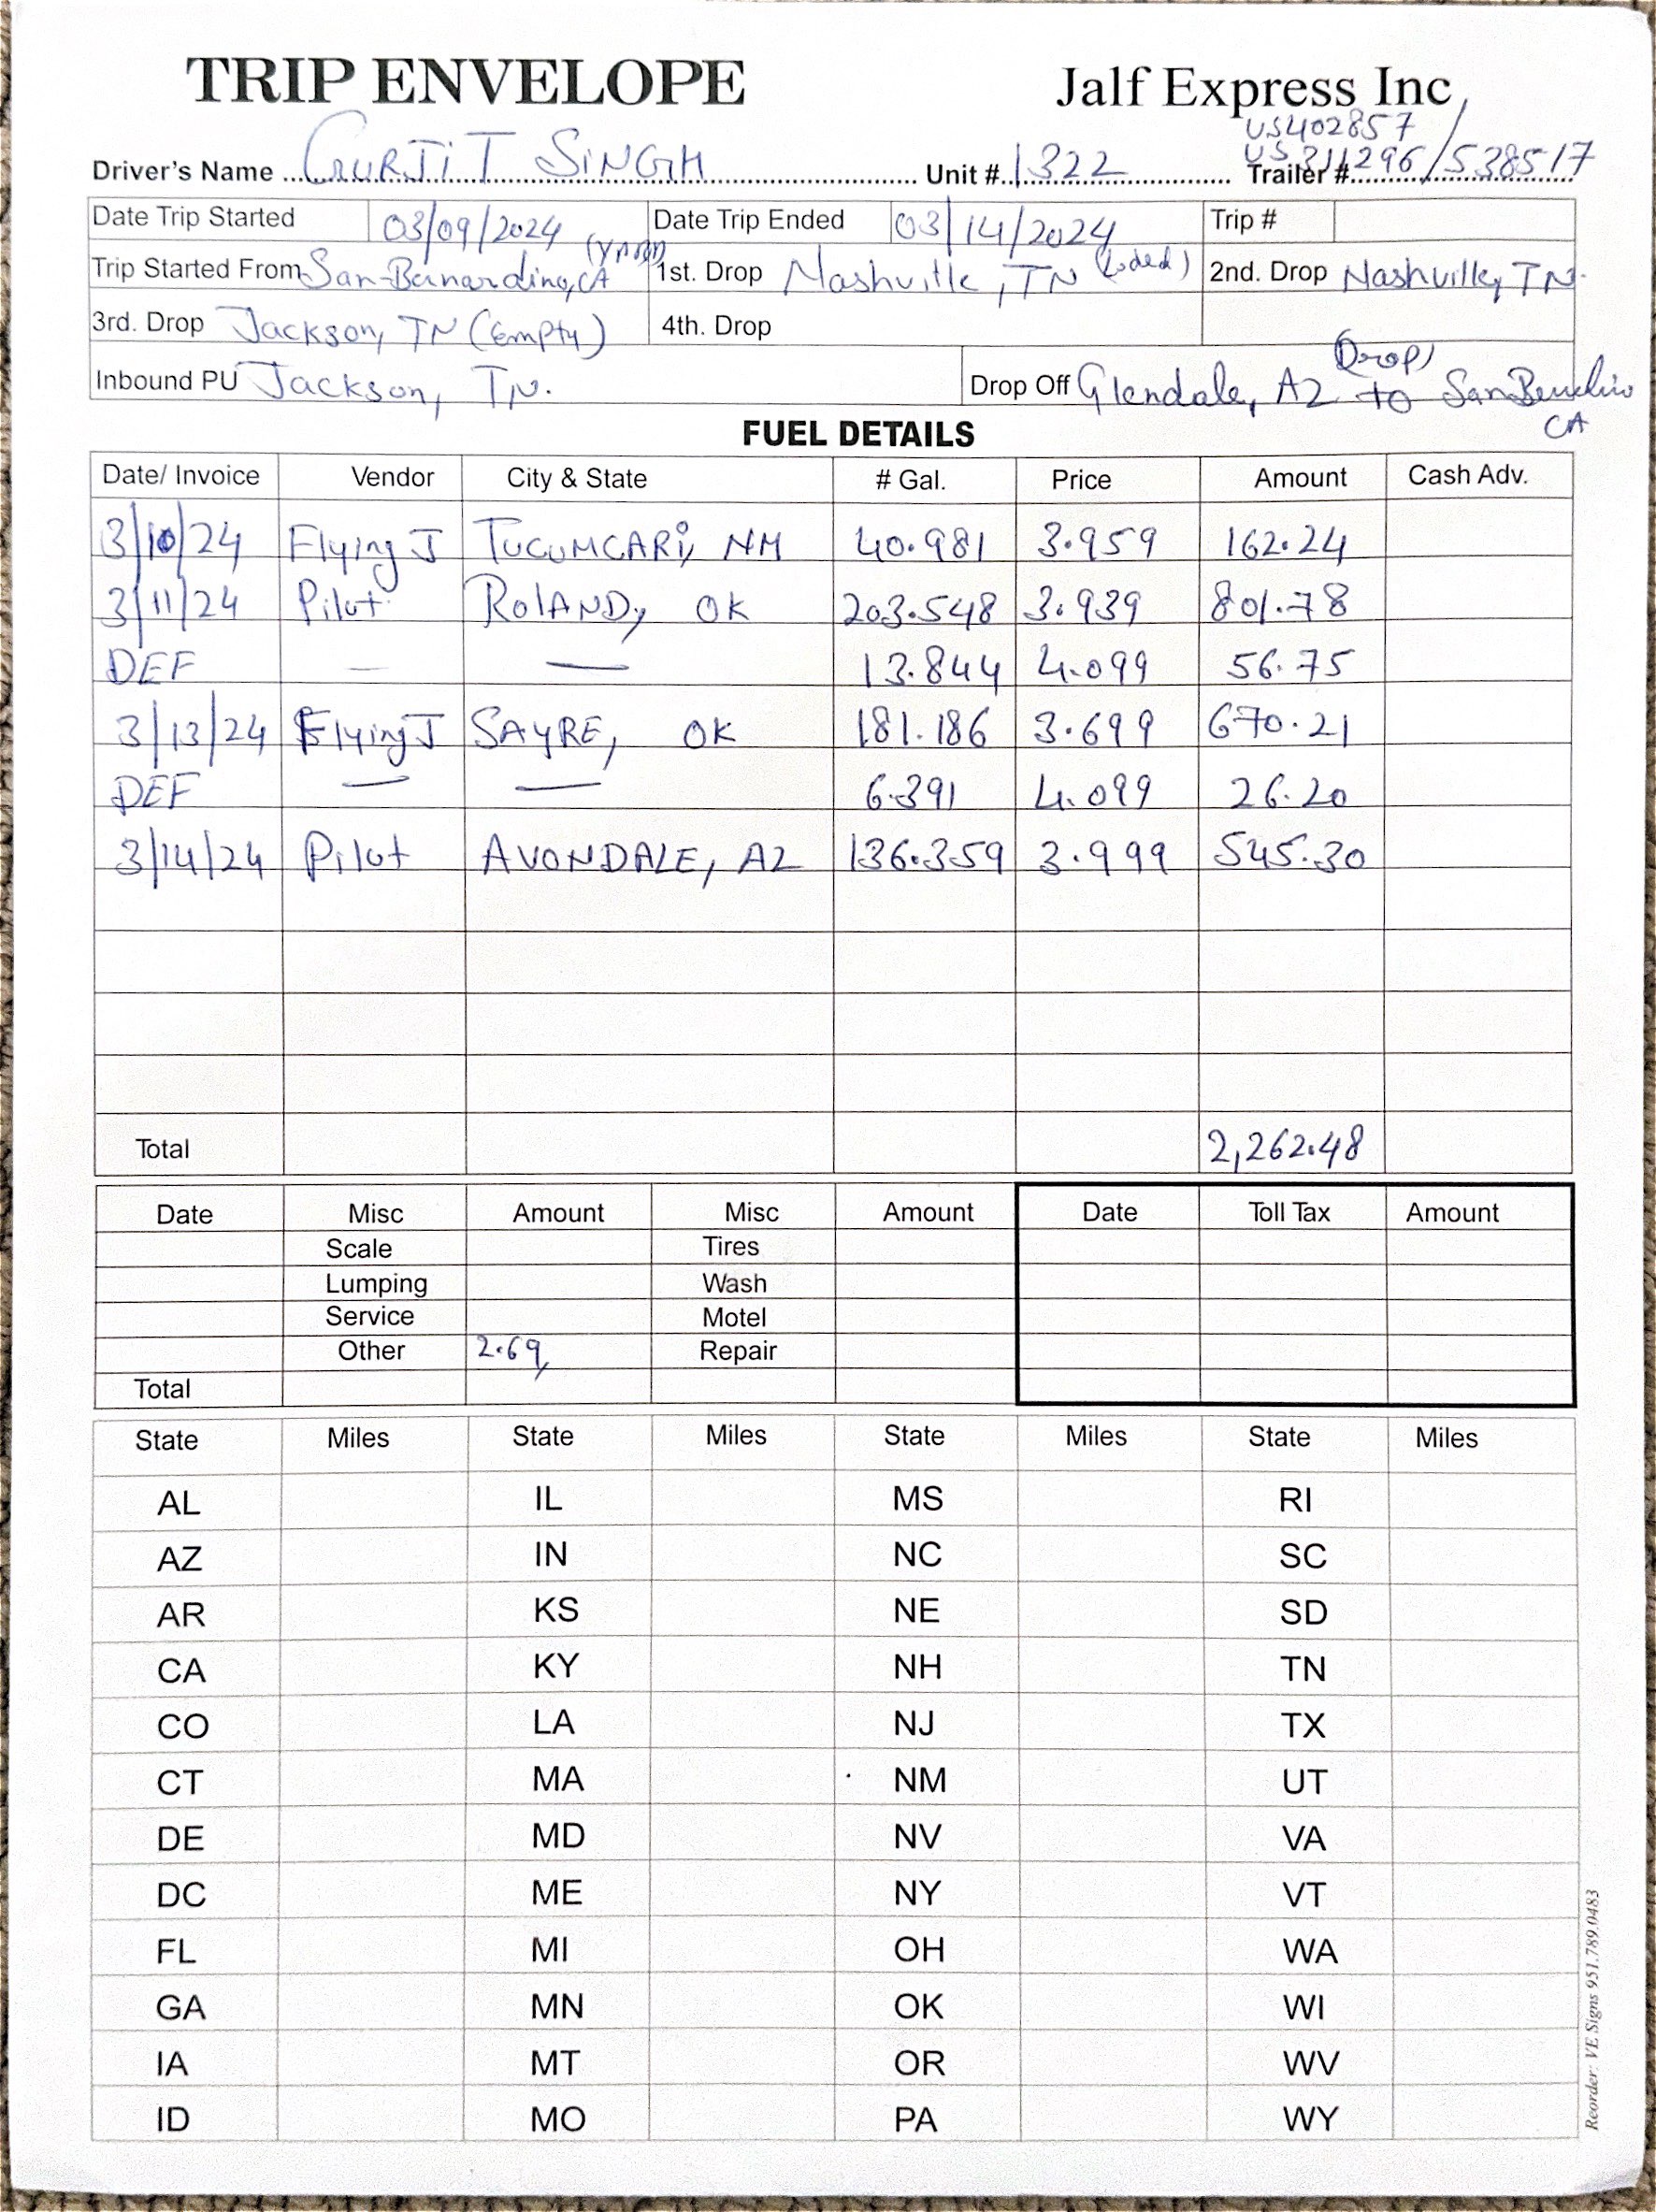 TRIP ENVELOPE Jalf Express Inc
US402857
Driver's Name GURJIT SINGH Unit # 1322 Trailer # US311296/538517
Date Trip Started 03/09/2024 Date Trip Ended 03/14/2024 Trip #
Trip Started From San-Bernardino, CA 1st. Drop Nashville, TN (Loded) 2nd. Drop Nashville, TN.
3rd. Drop Jackson, TN (Empty) 4th. Drop
Inbound PU Jackson, TN. Drop Off Glendale, AZ (Drop) to
CA
FUEL DETAILS
Date/ Invoice Vendor City & State # Gal. Price Amount Cash Adv.
3/10/24 Flying J TUCUMCARI, NM 40.981 3.959 162.24
3/11/24 Pilot RolAND, OK 203.548 3.939 801.78
DEF — — 13.844 4.099 56.75
3/13/24 Flying J SAYRE, OK 181.186 3.699 670.21
DEF — — 6.391 4.099 26.20
3/14/24 Pilot AVONDALE, AZ 136.359 3.999 545.30
Total 2,262.48
Date Misc Amount Misc Amount Date Toll Tax Amount
Scale Tires
Lumping Wash
Service Motel
Other 2.69 Repair
Total
State Miles State Miles State Miles State Miles
AL IL MS RI
AZ IN NC SC
AR KS NE SD
CA KY NH TN
CO LA NJ TX
CT MA NM UT
DE MD NV VA
DC ME NY VT
FL MI OH WA
GA MN OK WI
IA MT OR WV
ID MO PA WY
Reorder: VE Signs 951.789.0483